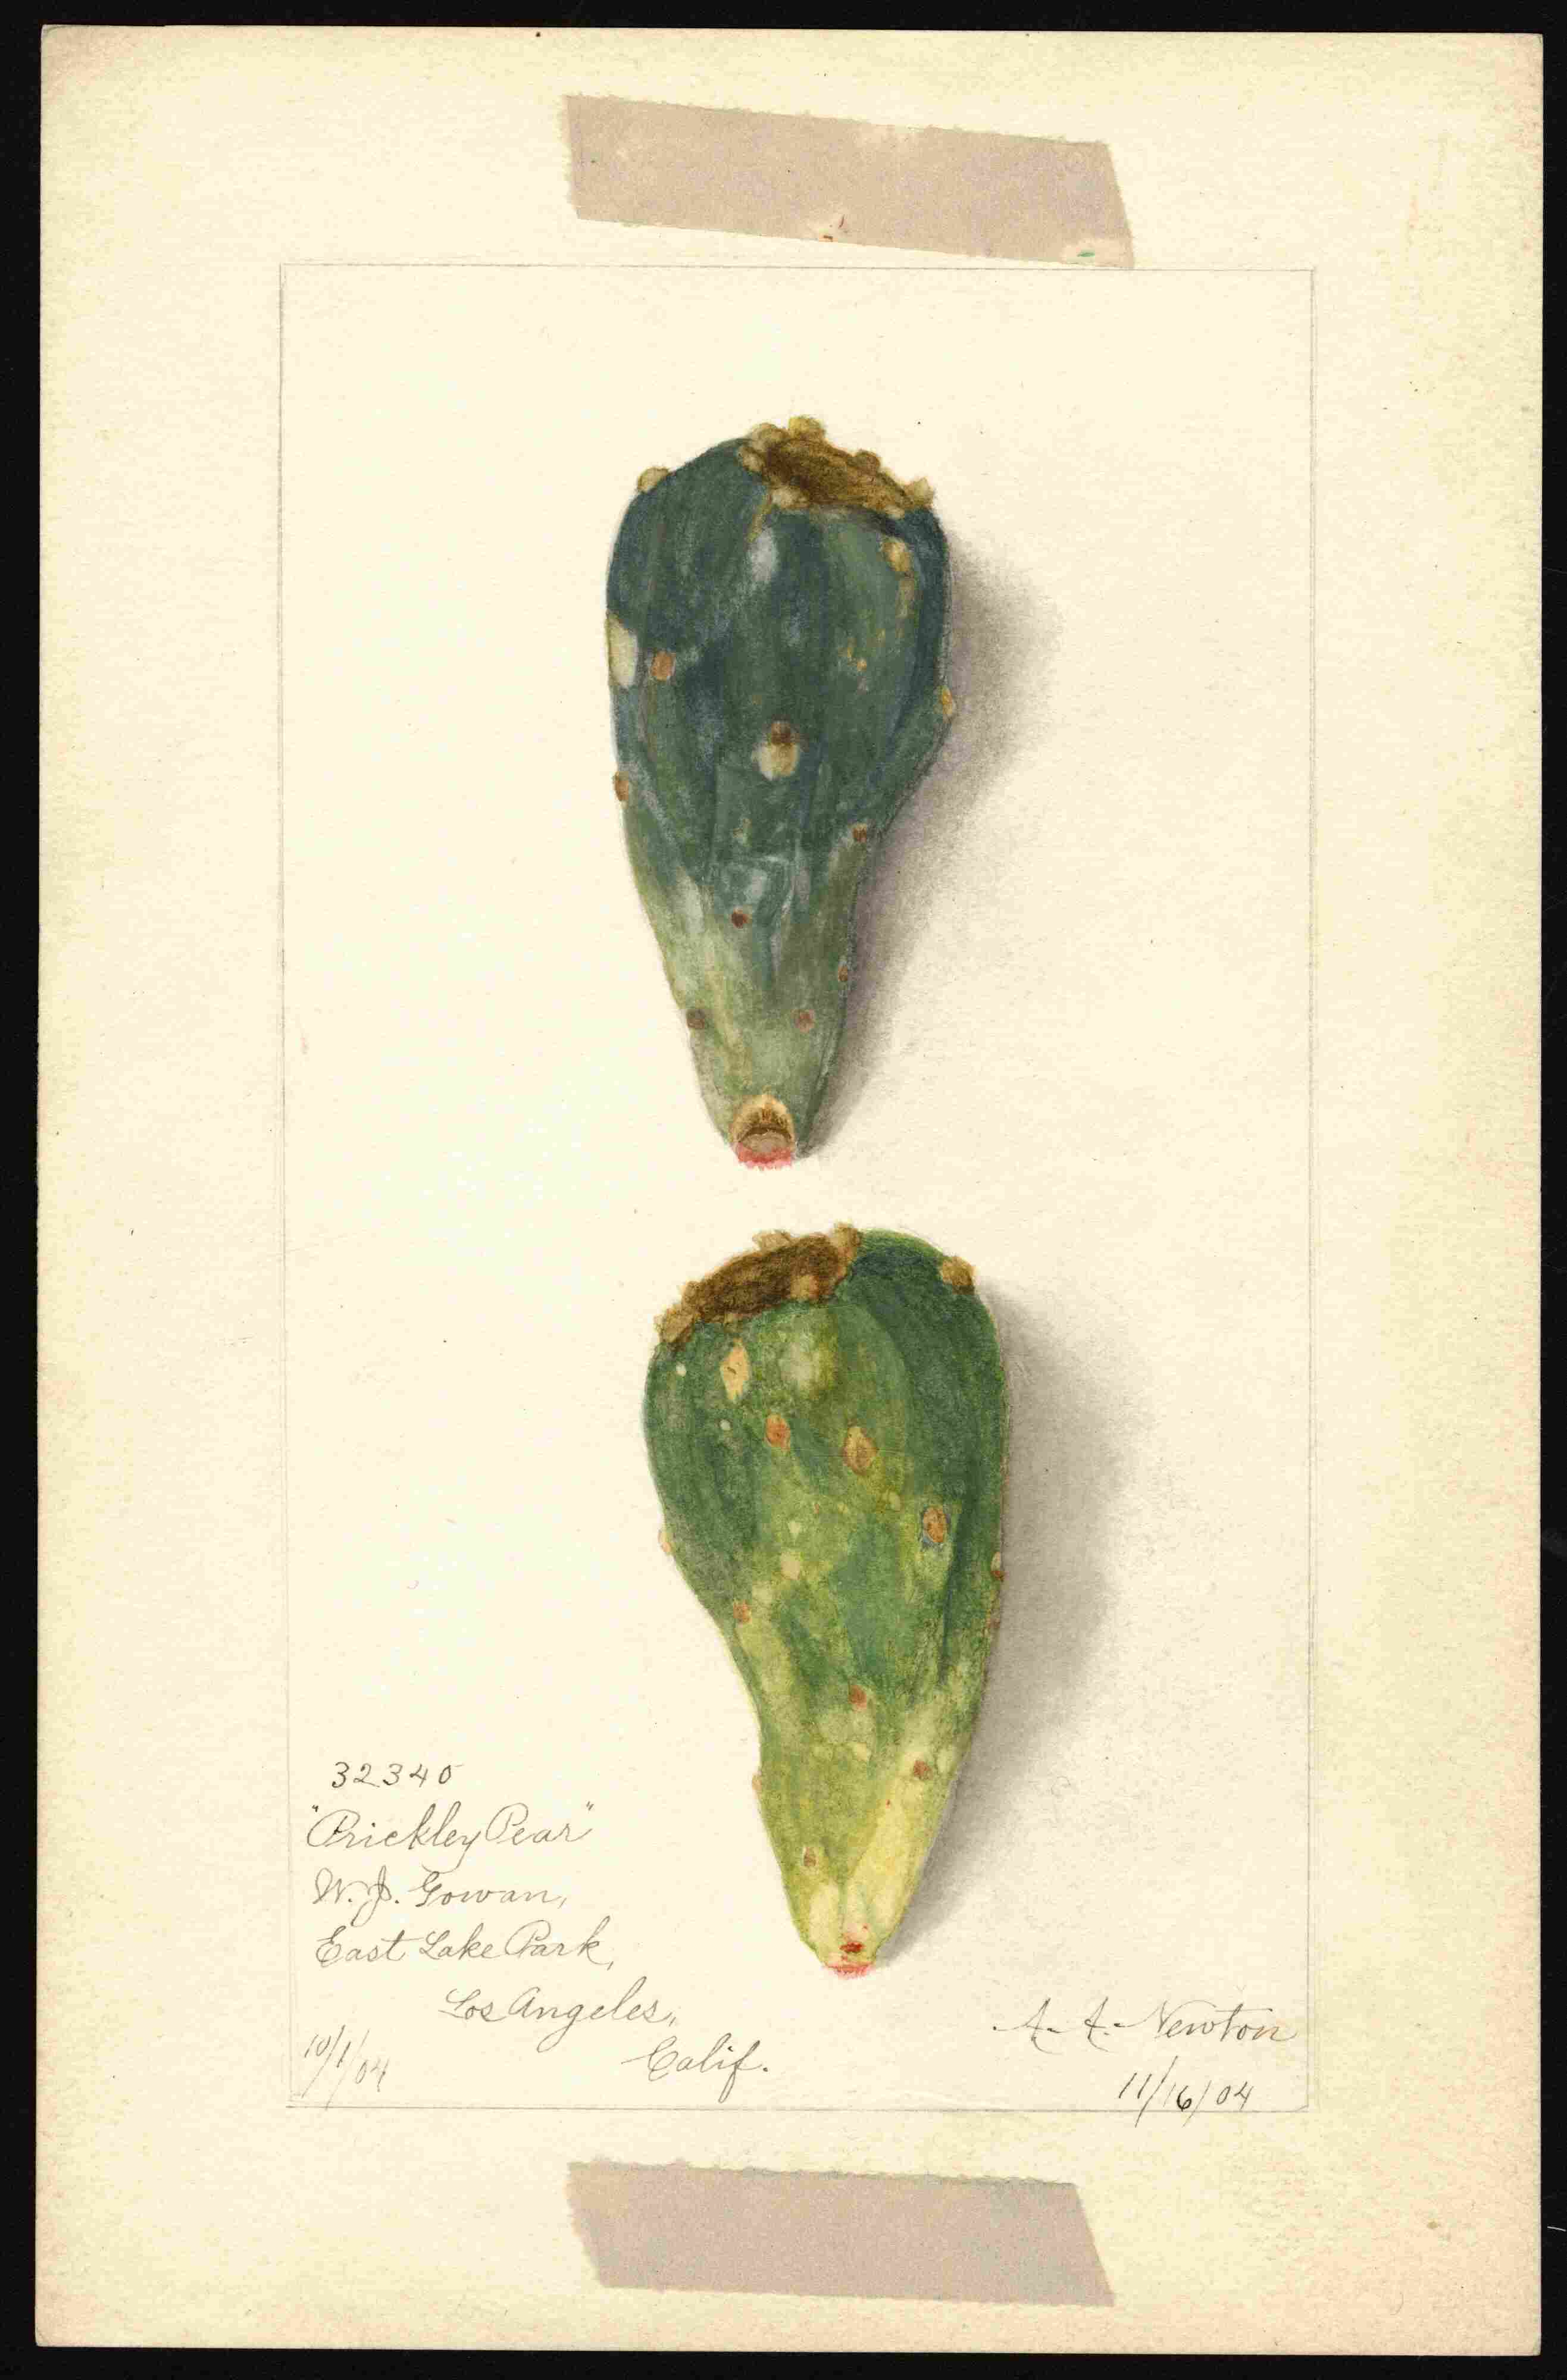 32340
"Prickley Pear"
W. J. Gowan,
East Lake Park,
Los Angeles,
Calif.
10/1/04
A. A. Newton
11/16/04